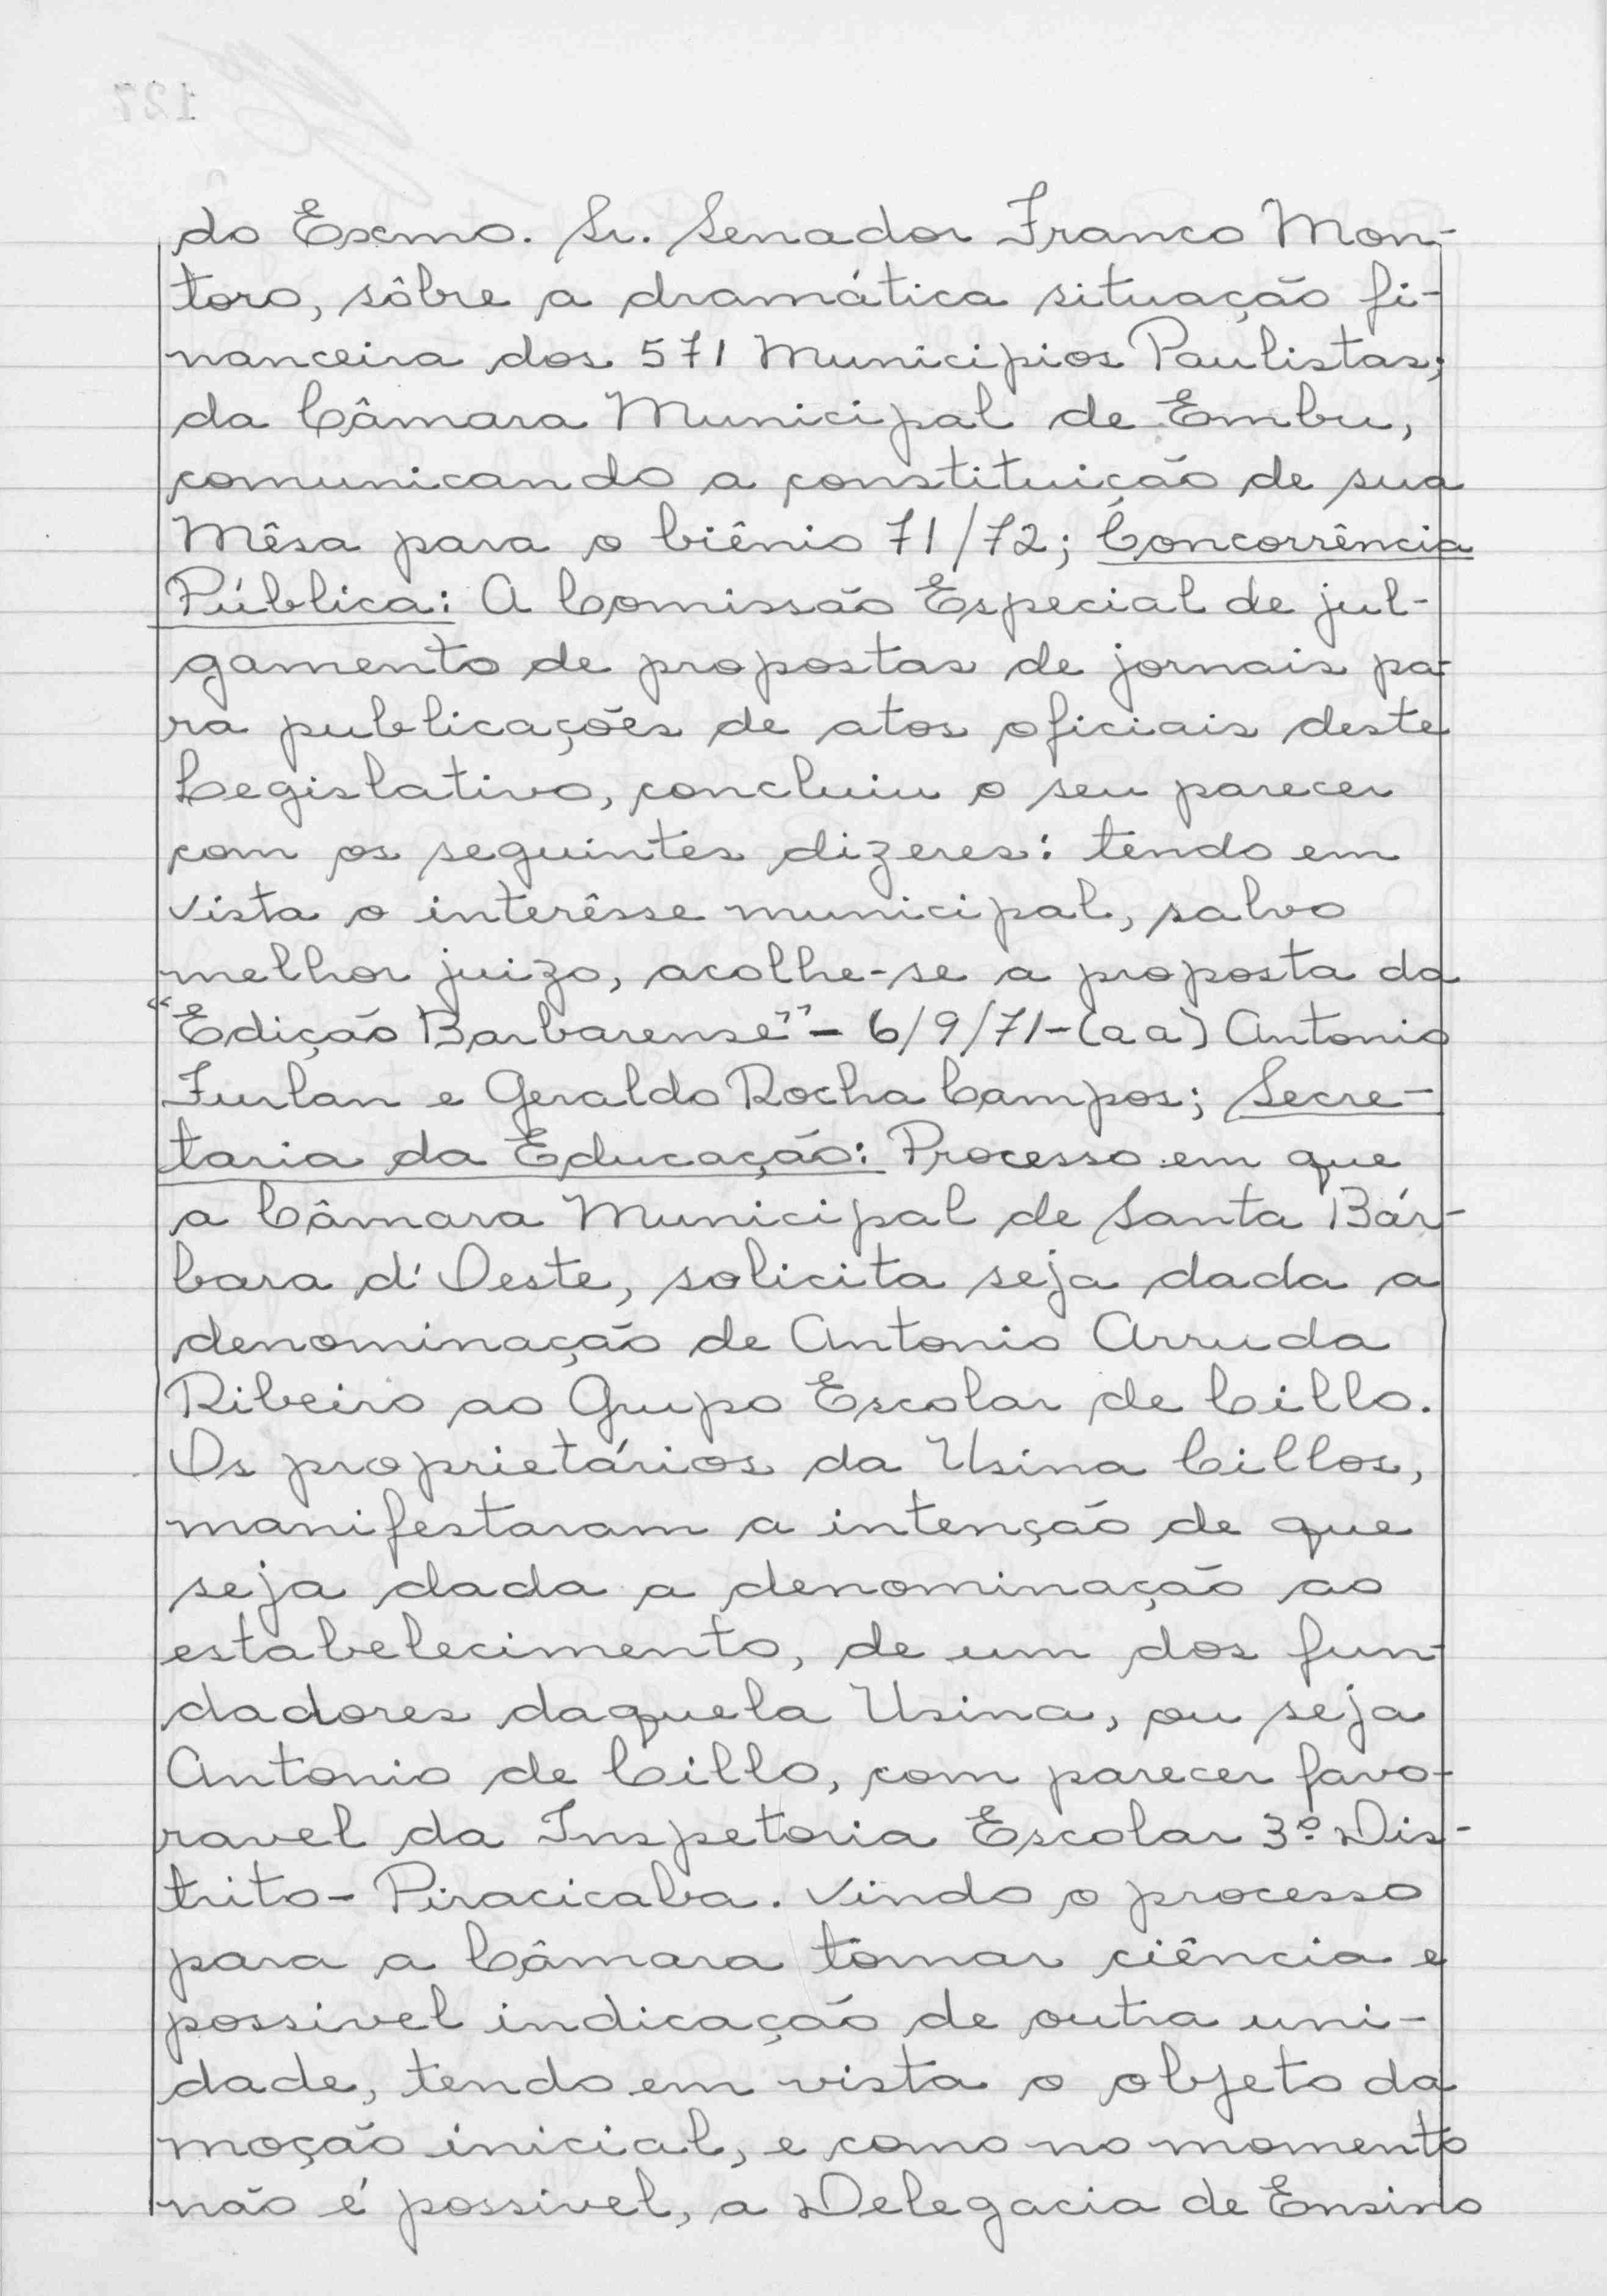 do Exmo. Sr. Senador Franco Mon-
toro, sôbre a dramática situação fi-
nanceira dos 571 Municipios Paulistas;
da Câmara Municipal de Embu,
comunicando a constituição de sua
Mêsa para o biênio 71/72; Concorrência
Pública: A Comissão Especial de jul-
gamento de propostas de jornais pa-
ra publicações de atos oficiais deste
Legislativo, concluiu o seu parecer
com os seguintes dizeres: tendo em
vista o interêsse municipal, salvo
melhor juizo, acolhe-se a proposta da
"Edição Barbarense" - 6/9/71 - (aa) Antonio
Furlan e Geraldo Rocha Campos; Secre-
taria da Educação: Processo em que
a Câmara Municipal de Santa Bár-
bara d'Oeste, solicita seja dada a
denominação de Antonio Arruda
Ribeiro ao Grupo Escolar de Cillo.
Os proprietários da Usina Cillos,
manifestaram a intenção de que
seja dada a denominação ao
estabelecimento, de um dos fun-
dadores daquela Usina, ou seja
Antonio de Cillo, com parecer favo-
ravel da Inspetoria Escolar 3º Dis-
trito - Piracicaba. Vindo o processo
para a Câmara tomar ciência e
possivel indicação de outra uni-
dade, tendo em vista o objeto da
moção inicial, e como no momento
não é possivel, a Delegacia de Ensino